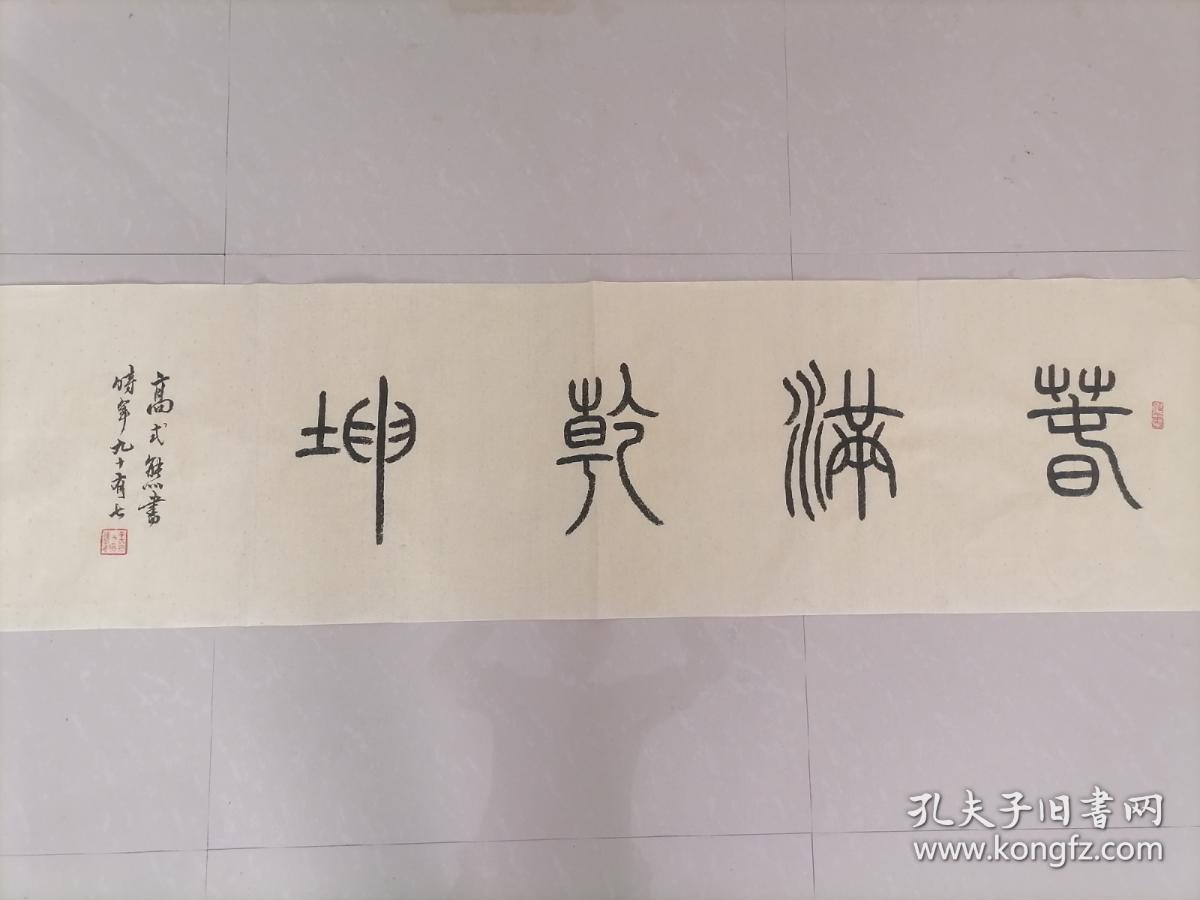 春滿乾坤
高式熊書
時年九十有七
孔夫子旧書网
www.kongfz.com